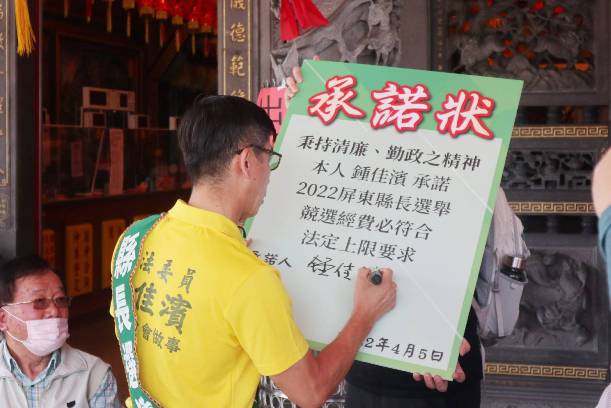 承諾狀
秉持清廉、勤政之精神
本人 鍾佳濱 承諾
2022屏東縣長選舉
競選經費必符合
法定上限要求
承諾人 鍾佳
2年4月5日
法委員
佳濱
會做事
縣長選
德範
出